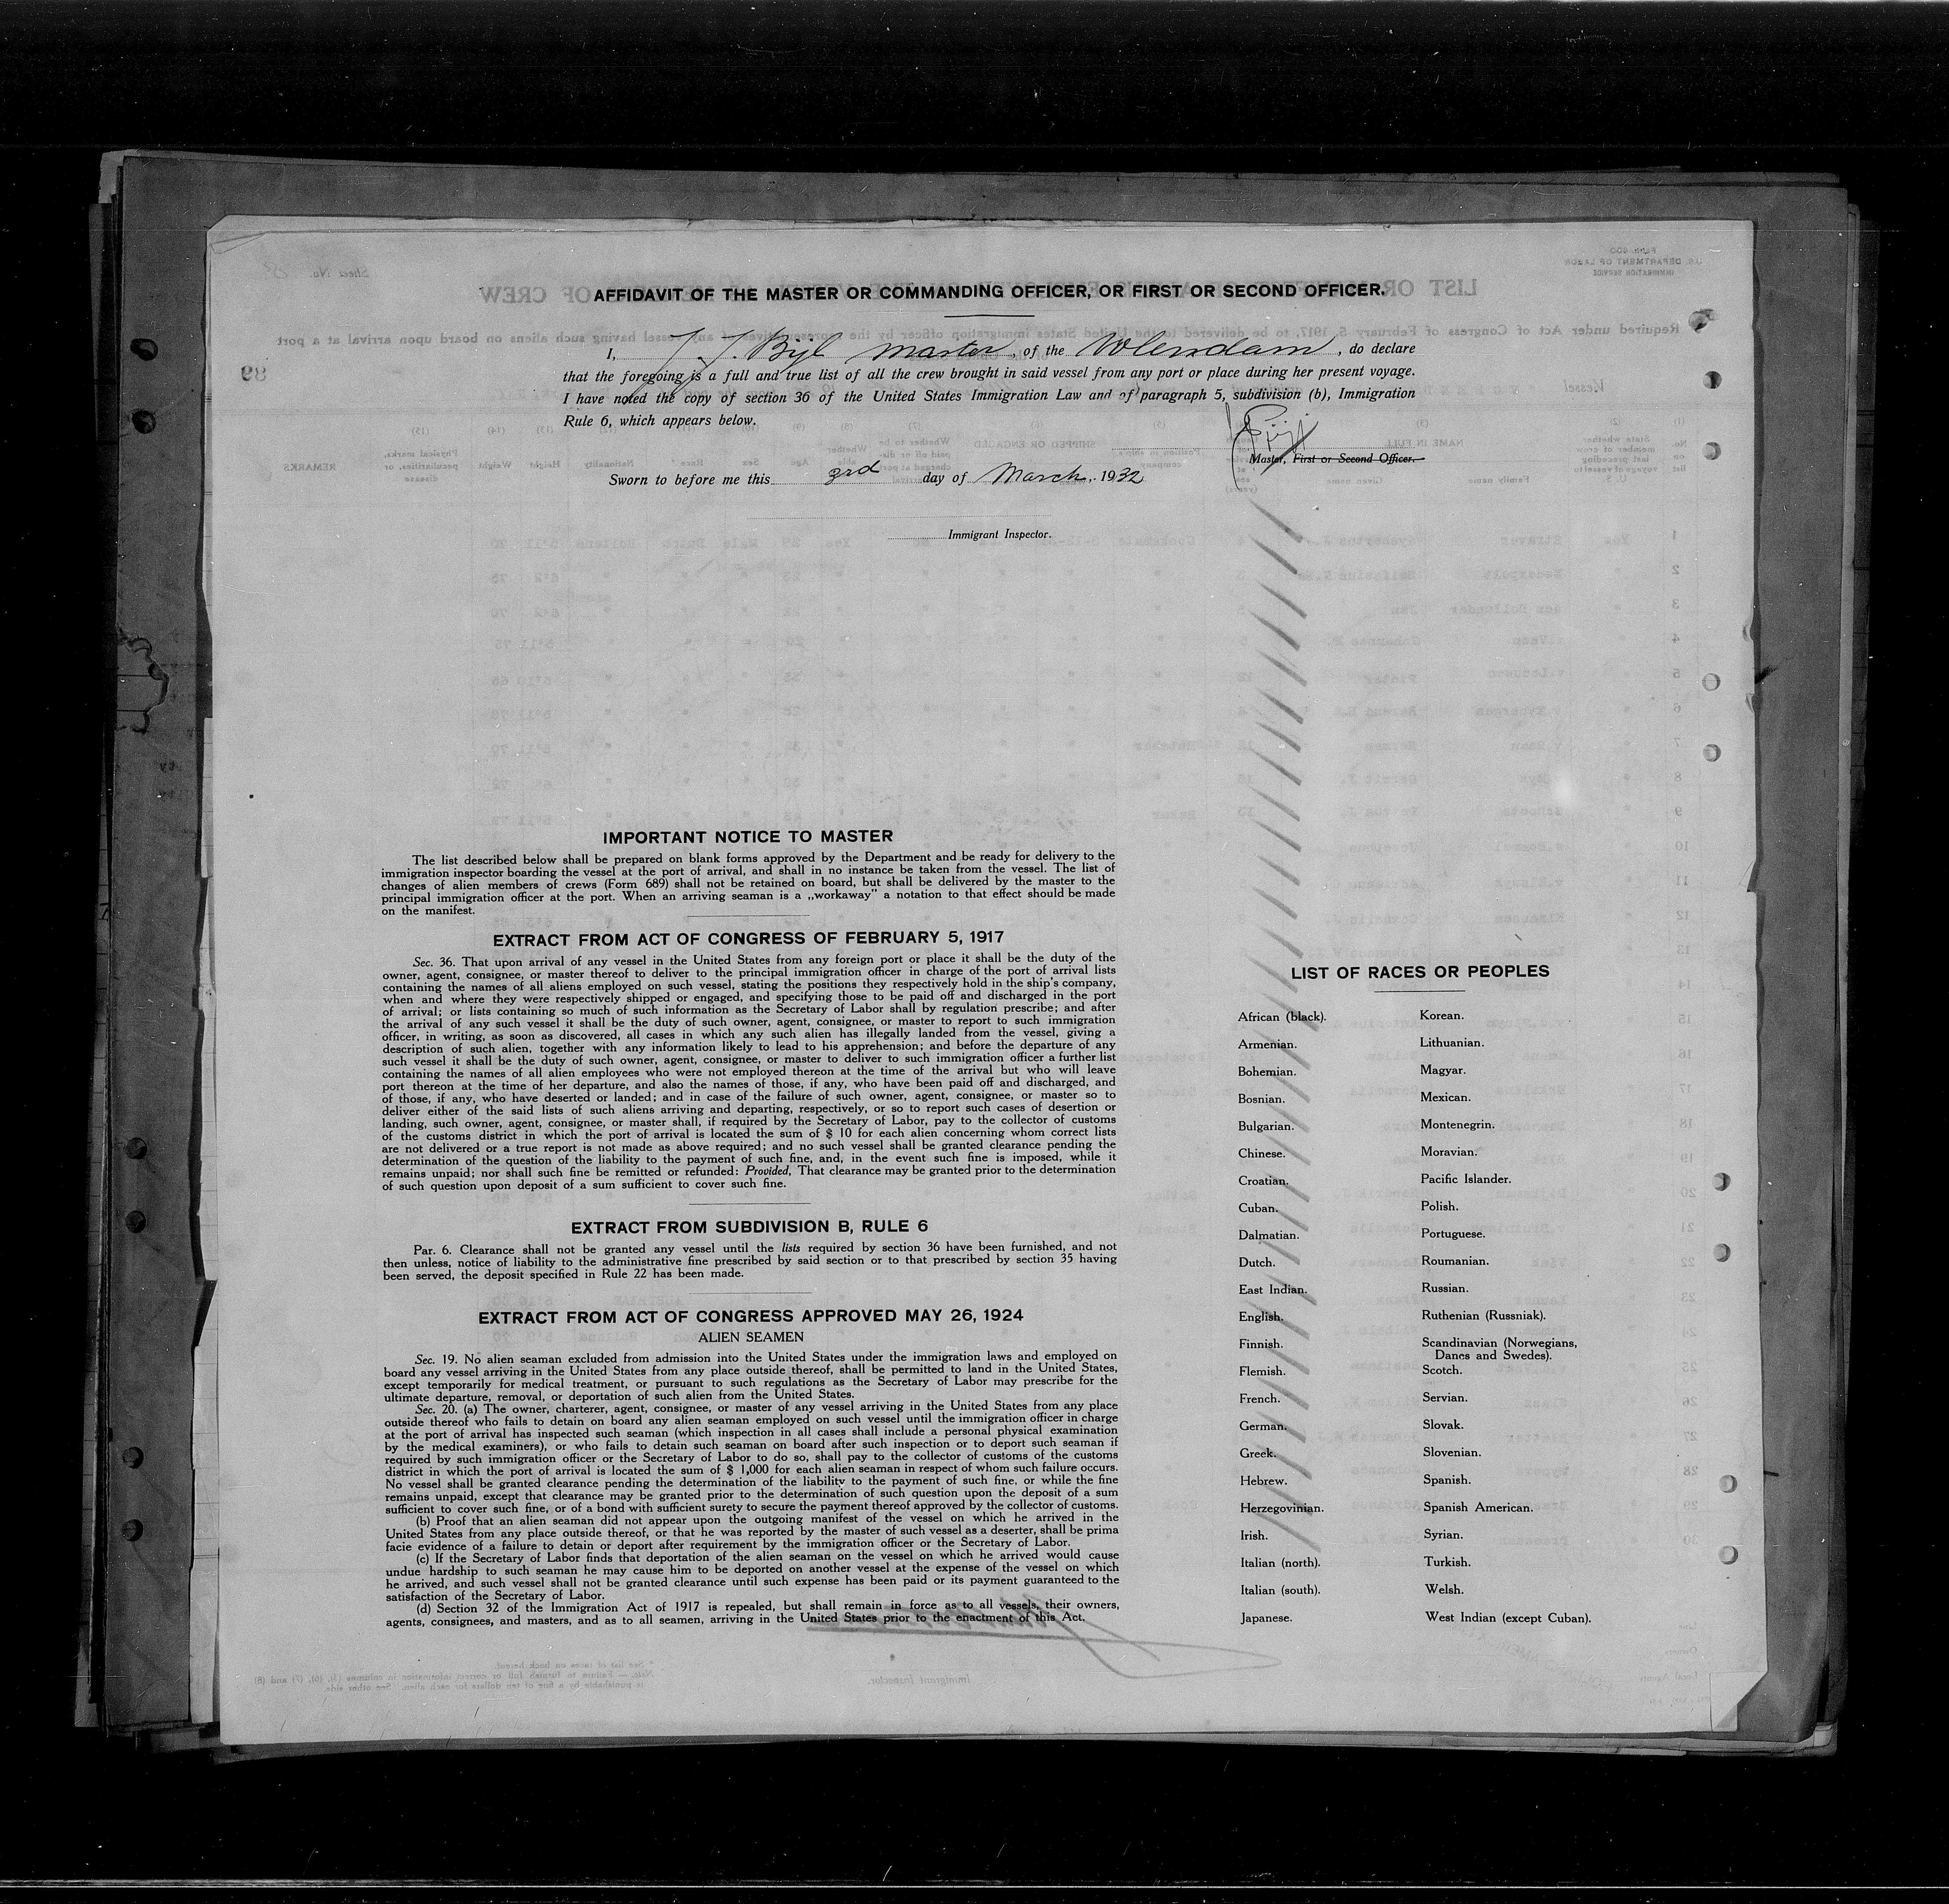 AFFIDAVIT OF THE MASTER OR COMMANDING OFFICER, OR FIRST OR SECOND OFFICER.
I, J. J. Bijl master, of the Volendam, do declare
that the foregoing is a full and true list of all the crew brought in said vessel from any port or place during her present voyage.
I have noted the copy of section 36 of the United States Immigration Law and of paragraph 5, subdivision (b), Immigration
Rule 6, which appears below.
Bijl
Master, First or Second Officer.
Sworn to before me this 3rd day of March, 1932
Immigrant Inspector.
IMPORTANT NOTICE TO MASTER
The list described below shall be prepared on blank forms approved by the Department and be ready for delivery to the
immigration inspector boarding the vessel at the port of arrival, and shall in no instance be taken from the vessel. The list of
changes of alien members of crews (Form 689) shall not be retained on board, but shall be delivered by the master to the
principal immigration officer at the port. When an arriving seaman is a „workaway" a notation to that effect should be made
on the manifest.
EXTRACT FROM ACT OF CONGRESS OF FEBRUARY 5, 1917
Sec. 36. That upon arrival of any vessel in the United States from any foreign port or place it shall be the duty of the
owner, agent, consignee, or master thereof to deliver to the principal immigration officer in charge of the port of arrival lists
containing the names of all aliens employed on such vessel, stating the positions they respectively hold in the ship's company,
when and where they were respectively shipped or engaged, and specifying those to be paid off and discharged in the port
of arrival; or lists containing so much of such information as the Secretary of Labor shall by regulation prescribe; and after
the arrival of any such vessel it shall be the duty of such owner, agent, consignee, or master to report to such immigration
officer, in writing, as soon as discovered, all cases in which any such alien has illegally landed from the vessel, giving a
description of such alien, together with any information likely to lead to his apprehension; and before the departure of any
such vessel it shall be the duty of such owner, agent, consignee, or master to deliver to such immigration officer a further list
containing the names of all alien employees who were not employed thereon at the time of the arrival but who will leave
port thereon at the time of her departure, and also the names of those, if any, who have been paid off and discharged, and
of those, if any, who have deserted or landed; and in case of the failure of such owner, agent, consignee, or master so to
deliver either of the said lists of such aliens arriving and departing, respectively, or so to report such cases of desertion or
landing, such owner, agent, consignee, or master shall, if required by the Secretary of Labor, pay to the collector of customs
of the customs district in which the port of arrival is located the sum of $ 10 for each alien concerning whom correct lists
are not delivered or a true report is not made as above required; and no such vessel shall be granted clearance pending the
determination of the question of the liability to the payment of such fine, and, in the event such fine is imposed, while it
remains unpaid; nor shall such fine be remitted or refunded: Provided, That clearance may be granted prior to the determination
of such question upon deposit of a sum sufficient to cover such fine.
EXTRACT FROM SUBDIVISION B, RULE 6
Par. 6. Clearance shall not be granted any vessel until the lists required by section 36 have been furnished, and not
then unless, notice of liability to the administrative fine prescribed by said section or to that prescribed by section 35 having
been served, the deposit specified in Rule 22 has been made.
EXTRACT FROM ACT OF CONGRESS APPROVED MAY 26, 1924
ALIEN SEAMEN
Sec. 19. No alien seaman excluded from admission into the United States under the immigration laws and employed on
board any vessel arriving in the United States from any place outside thereof, shall be permitted to land in the United States,
except temporarily for medical treatment, or pursuant to such regulations as the Secretary of Labor may prescribe for the
ultimate departure, removal, or deportation of such alien from the United States.
Sec. 20. (a) The owner, charterer, agent, consignee, or master of any vessel arriving in the United States from any place
outside thereof who fails to detain on board any alien seaman employed on such vessel until the immigration officer in charge
at the port of arrival has inspected such seaman (which inspection in all cases shall include a personal physical examination
by the medical examiners), or who fails to detain such seaman on board after such inspection or to deport such seaman if
required by such immigration officer or the Secretary of Labor to do so, shall pay to the collector of customs of the customs
district in which the port of arrival is located the sum of $ 1,000 for each alien seaman in respect of whom such failure occurs.
No vessel shall be granted clearance pending the determination of the liability to the payment of such fine, or while the fine
remains unpaid, except that clearance may be granted prior to the determination of such question upon the deposit of a sum
sufficient to cover such fine, or of a bond with sufficient surety to secure the payment thereof approved by the collector of customs.
(b) Proof that an alien seaman did not appear upon the outgoing manifest of the vessel on which he arrived in the
United States from any place outside thereof, or that he was reported by the master of such vessel as a deserter, shall be prima
facie evidence of a failure to detain or deport after requirement by the immigration officer or the Secretary of Labor.
(c) If the Secretary of Labor finds that deportation of the alien seaman on the vessel on which he arrived would cause
undue hardship to such seaman he may cause him to be deported on another vessel at the expense of the vessel on which
he arrived, and such vessel shall not be granted clearance until such expense has been paid or its payment guaranteed to the
satisfaction of the Secretary of Labor.
(d) Section 32 of the Immigration Act of 1917 is repealed, but shall remain in force as to all vessels, their owners,
agents, consignees, and masters, and as to all seamen, arriving in the United States prior to the enactment of this Act.
LIST OF RACES OR PEOPLES
African (black).
Armenian.
Bohemian.
Bosnian.
Bulgarian.
Chinese.
Croatian.
Cuban.
Dalmatian.
Dutch.
East Indian.
English.
Finnish.
Flemish.
French.
German.
Greek.
Hebrew.
Herzegovinian.
Irish.
Italian (north).
Italian (south).
Japanese.
Korean.
Lithuanian.
Magyar.
Mexican.
Montenegrin.
Moravian.
Pacific Islander.
Polish.
Portuguese.
Roumanian.
Russian.
Ruthenian (Russniak).
Scandinavian (Norwegians,
Danes and Swedes).
Scotch.
Servian.
Slovak.
Slovenian.
Spanish.
Spanish American.
Syrian.
Turkish.
Welsh.
West Indian (except Cuban).